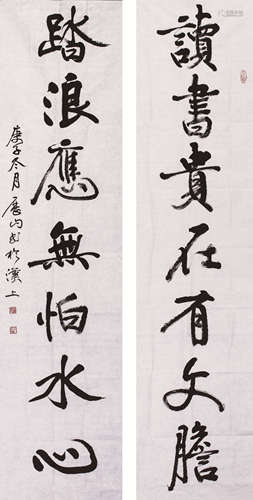 讀書貴在有文膽
踏浪應無怕水心
庚子冬月展向書於漢上